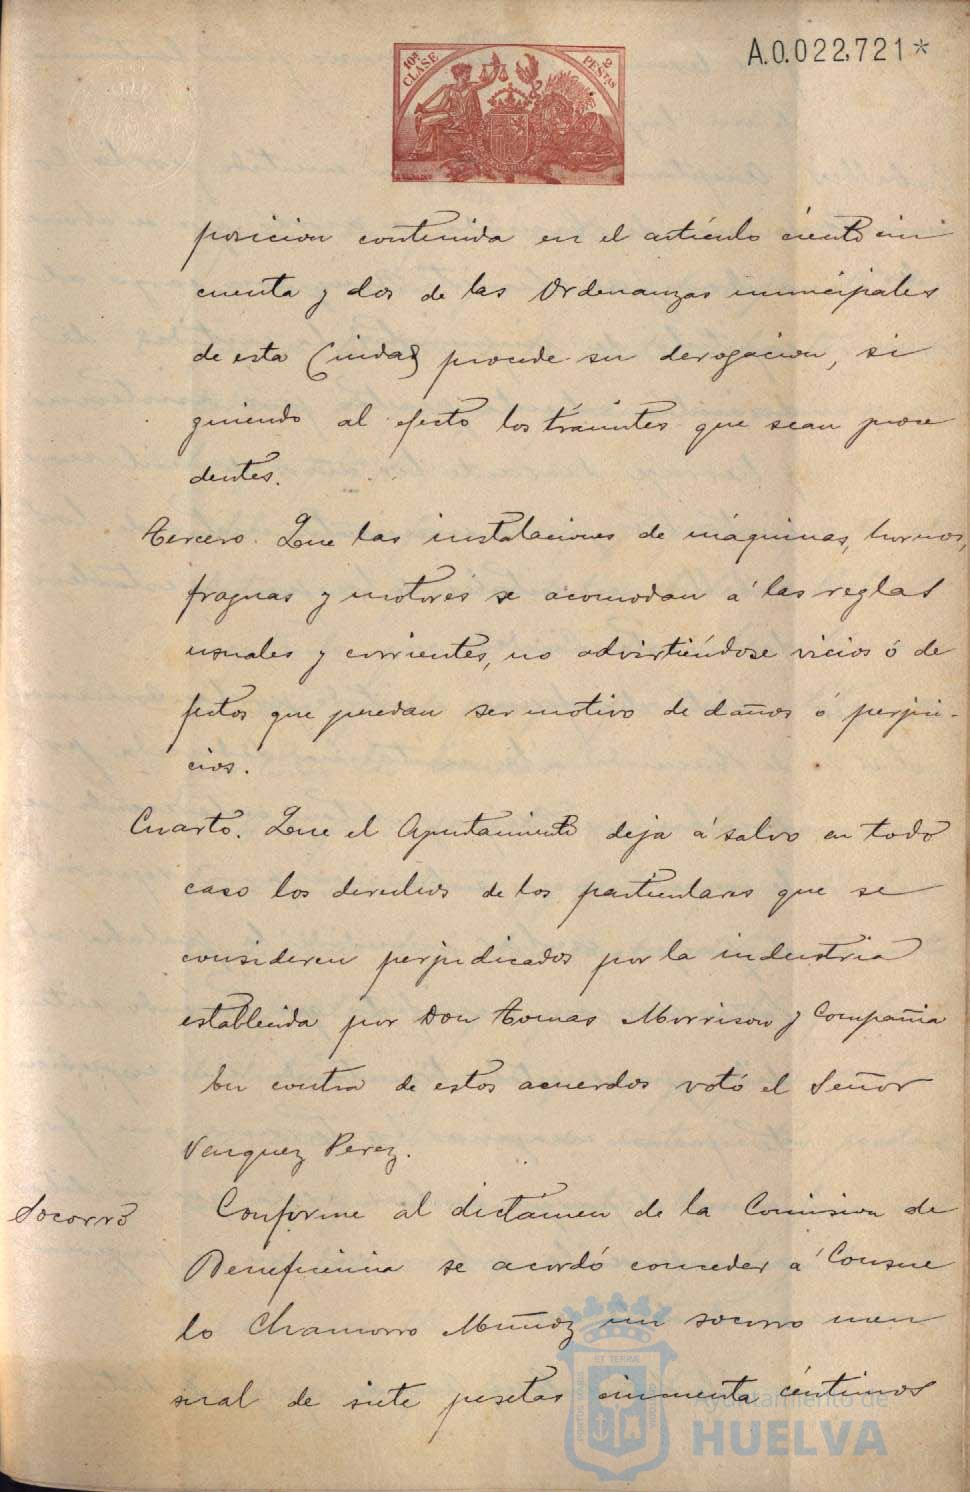 10ª CLASE 2 PESTAS
A.0.022,721*
posicion contenida en el artículo ciento cin
cuenta y dos de las Ordenanzas municipales
de esta Ciudad procede su derogacion, si
guiendo al efecto los trámites que sean proce
dentes.
Tercero. Que las instalaciones de máquinas, hornos,
fraguas y motores se acomodan á las reglas
usuales y corrientes, no advirtiéndose vicios ó de
fectos que puedan ser motivo de daños ó perjui-
cios.
Cuarto. Que el Ayuntamiento deja á salvo en todo
caso los derechos de los particulares que se
consideren perjudicados por la industria
establecida por Don Tomas Morrison y Compañia
En contra de estos acuerdos votó el Señor
Vazquez Perez.
Socorro
Conforme al dictámen de la Comision de
Beneficencia se acordó conceder á Consue
lo Chamorro Muñoz un socorro men
sual de siete pesetas cincuenta céntimos
Ayuntamiento de
HUELVA